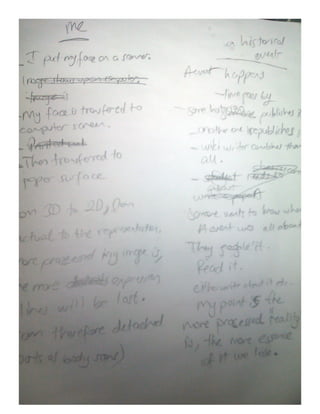 me
- I put my face on a scanner.
Image shows upon computer,
- My face is transfered to
computer screen.
- Then transfered to
paper surface
on 3D to 2D, from
actual to the representation.
more processed my image is,
he more expression
lines will be lost.
am therefore detached
parts of body scans)
eg historical
event
A event happens
- time goes by
- some body publishes it
- another one republishes it
- wiki writer combines them
all.
-
about
Someone wants to know what
A event was all about
They google it.
Read it.
either write about it etc.
My point is the
more processed reality
is, the more essence
of it we lose.